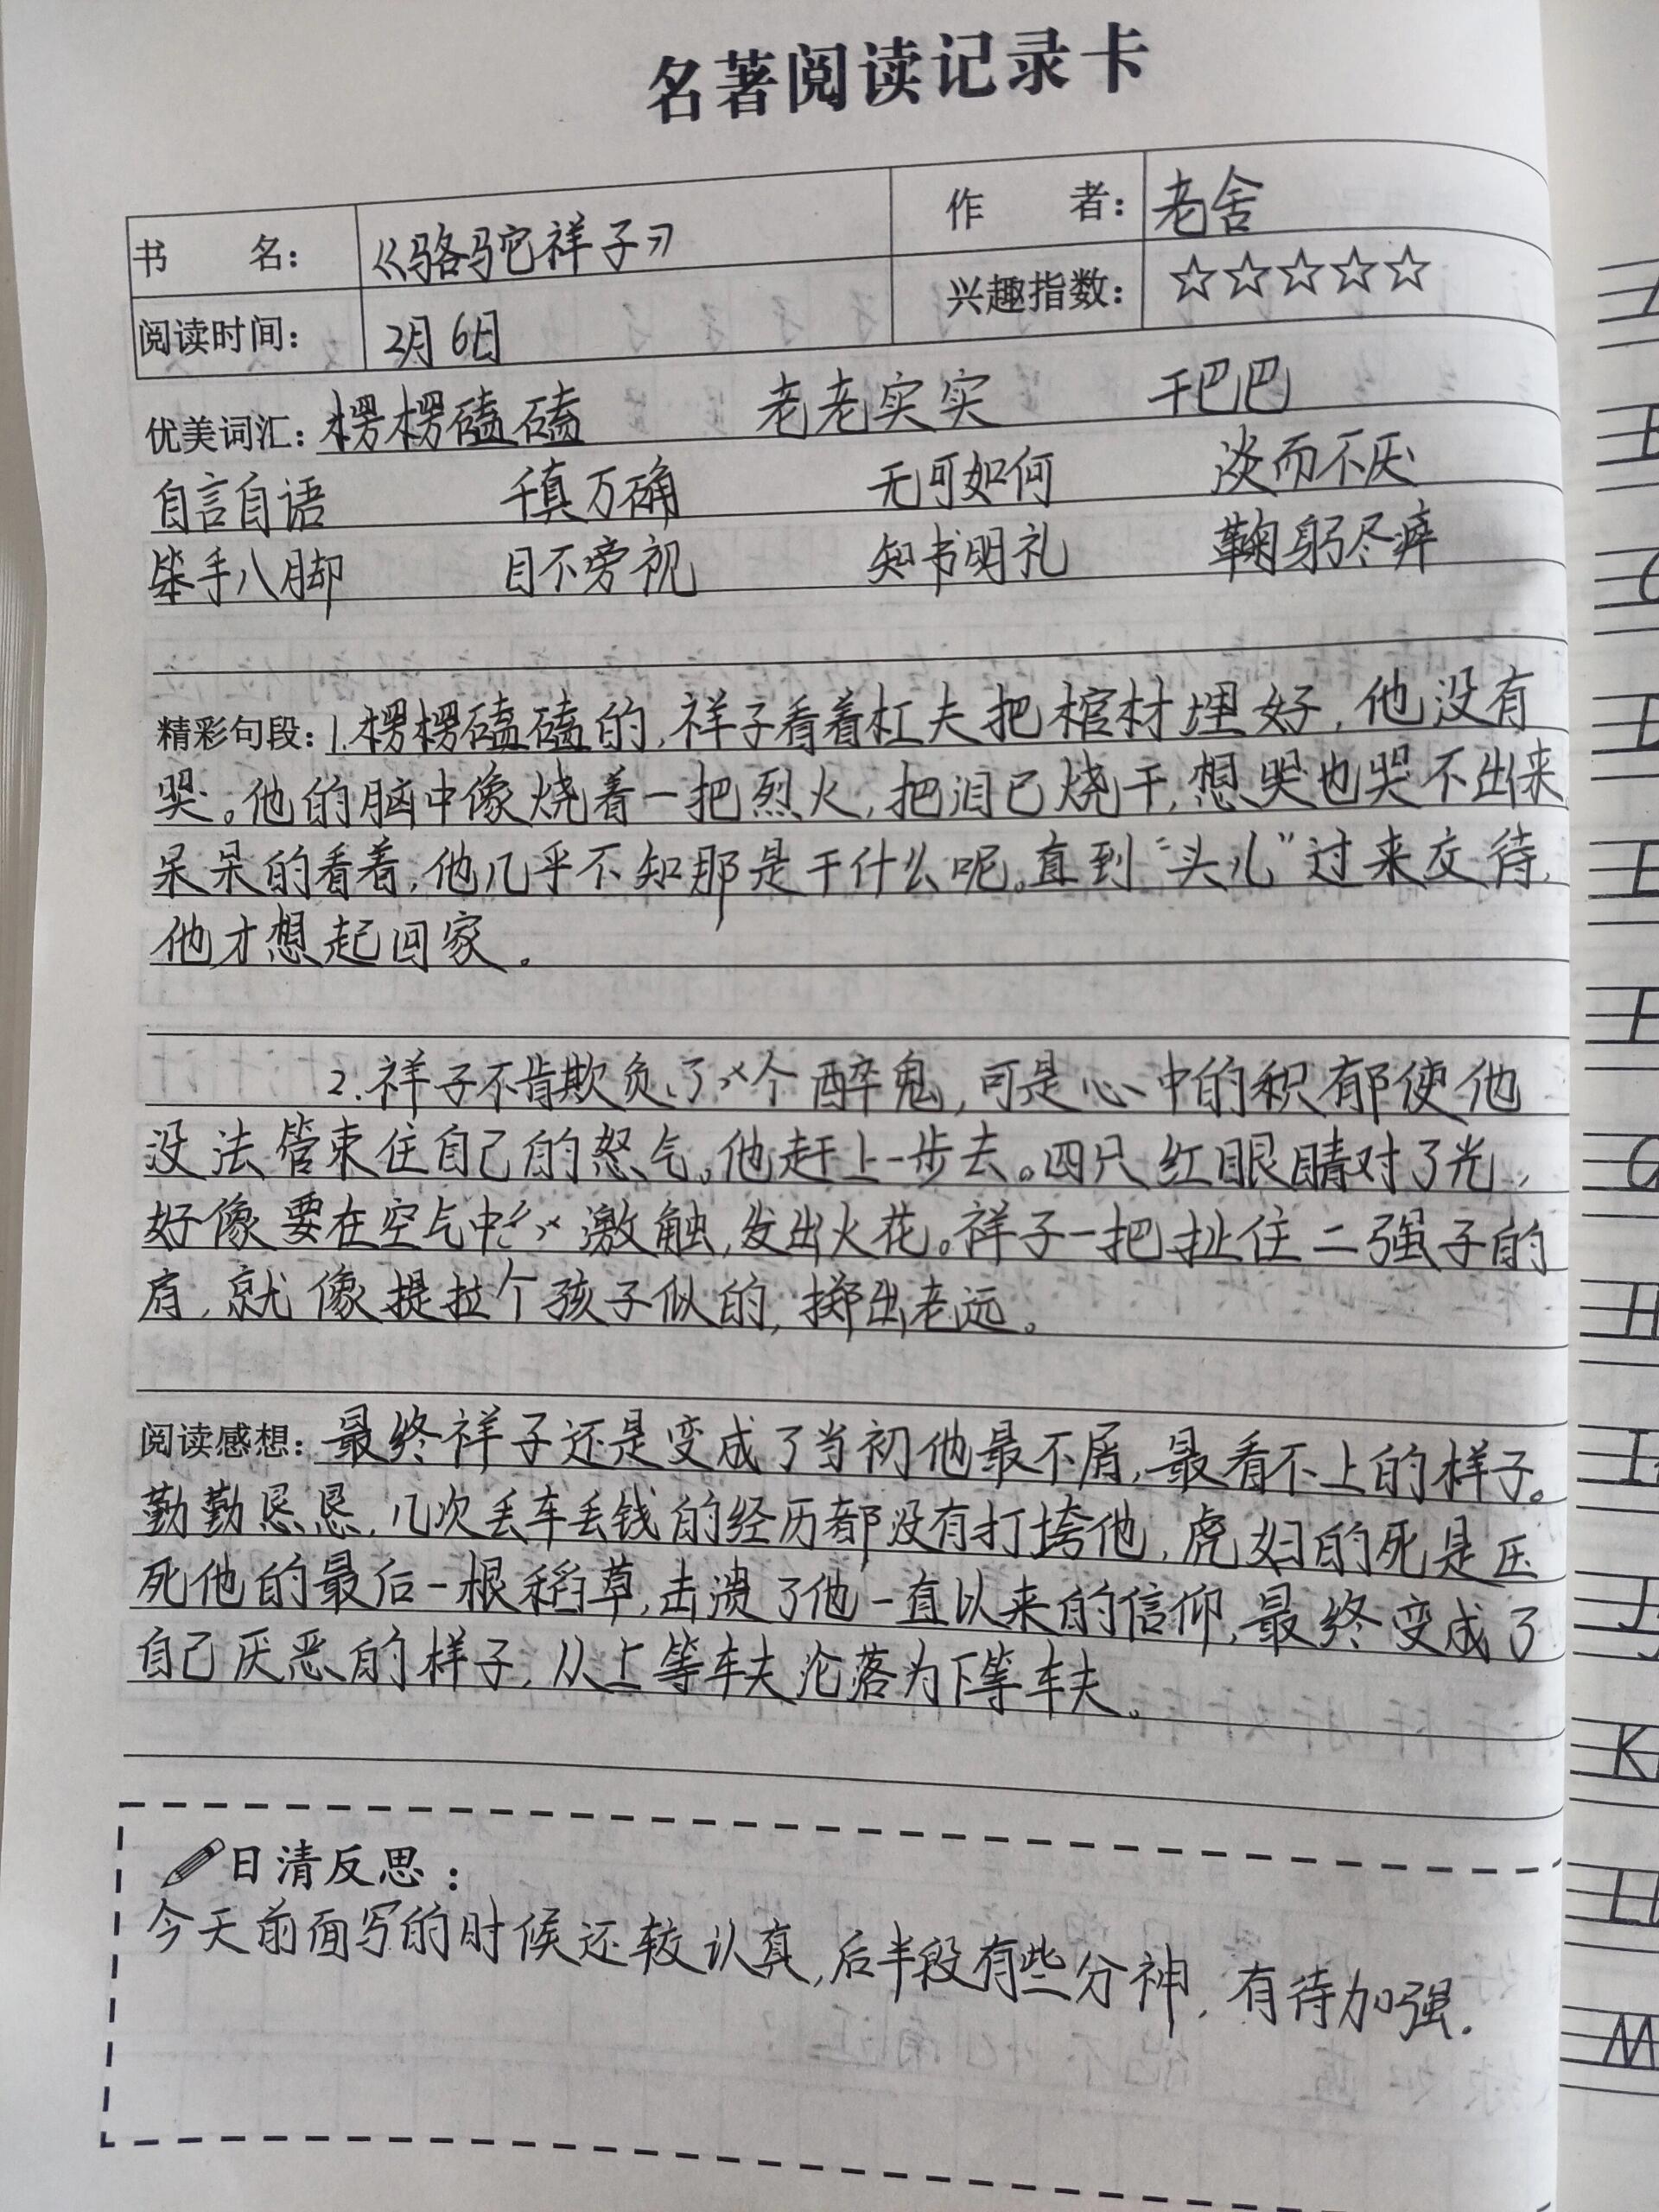 名著阅读记录卡
书 名： 《骆驼祥子》 作 者： 老舍
阅读时间： 2月6日 兴趣指数： ☆☆☆☆☆
优美词汇：楞楞磕磕 老老实实 干巴巴
自言自语 千真万确 无可如何 淡而不厌
笨手八脚 目不旁视 知书明礼 鞠躬尽瘁
精彩句段：1.楞楞磕磕的，祥子看着杠夫把棺材埋好，他没有
哭。他的脑中像烧着一把烈火，把泪已烧干，想哭也哭不出来
呆呆的看着，他几乎不知那是干什么呢。直到“头儿”过来交待，
他才想起回家。
2.祥子不肯欺负了个醉鬼，可是心中的积郁使他
没法管束住自己的怒气。他赶上一步去。四只红眼睛对了光，
好像要在空气中激触，发出火花。祥子一把扯住二强子的
肩，就像提拉个孩子似的，掷出老远。
阅读感想：最终祥子还是变成了当初他最不屑，最看不上的样子。
勤勤恳恳，几次丢车丢钱的经历都没有打垮他，虎妞的死是压
死他的最后一根稻草，击溃了他一直以来的信仰，最终变成了
自己厌恶的样子，从上等车夫沦落为下等车夫。
日清反思：
今天前面写的时候还较认真，后半段有些分神，有待加强.